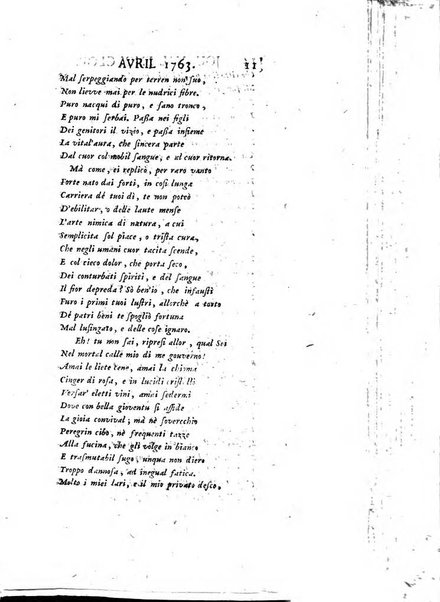 AVRIL 1763. 11
Mal serpeggiando per terren non suo,
Non lieve mai per le nudrici fibre.
Puro nacqui di puro, e sano tronco,
E puro mi serbai. Passa nei figli
Dei genitori il vizio, e passa insieme
La vital'aura, che sincera parte
Dal cuor col mobil sangue, e al cuor ritorna.
Mà come, ei replicò, per raro vanto
Forte nato dai forti, in così lunga
Carriera dé tuoi dì, te non poteò
D'ebilitar, o delle laute mense
L'arte nimica di natura, a cui
Semplicità sol piace, o trista cura,
Che negli umani cuor tacita scende,
E col cieco dolor, che porta seco,
Dei conturbati spiriti, e dèl sangue
Il fior depreda? Sò ben'io, che infausti
Furo i primi tuoi lustri, allorchè a torto
Dé patri beni te spogliò fortuna
Mal lusingato, e delle cose ignaro.
Eh! tu non sai, ripresi allor, qual Sei
Nel mortal calle mio di me governo!
Amai le liete cene, amai la chioma
Cinger di rosa, e in lucidi cristalli
Versar' eletti vini, amai sedermi
Dove con bella gioventu si asside
La gioia convival; mà nè soverechio
Peregrin cibo, nè frequenti tazze
Alla fucina, che gli volge in bianco
E trasmutabil sugo, unqua non diero
Troppo dannosa, ad inegual fatica.
Molto i miei lari, e il mio privato desco,